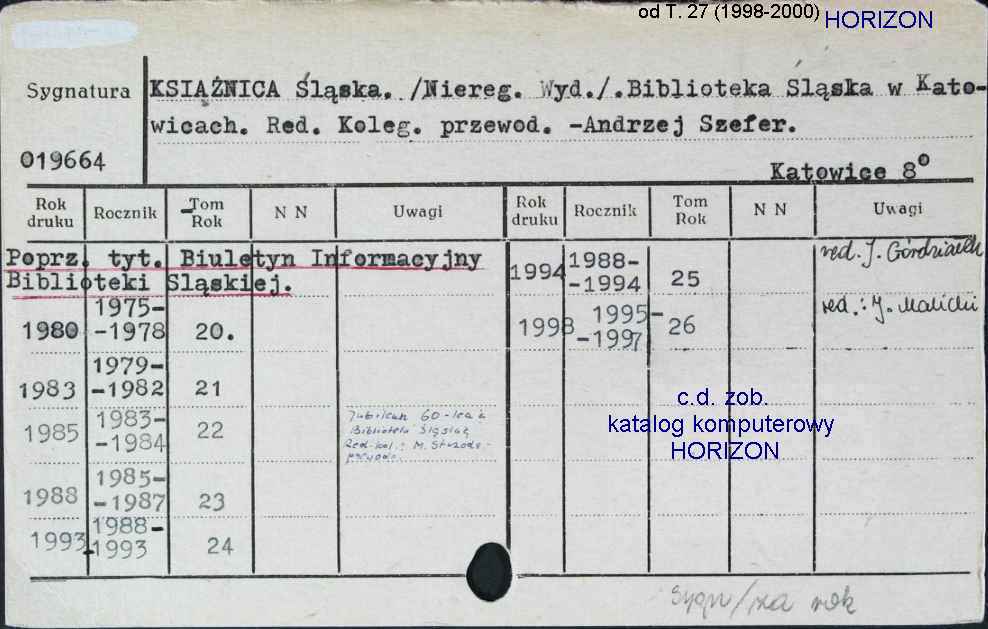 od T. 27 (1998-2000) HORIZON
Sygnatura
019664
KSIĄŻNICA Śląska. /Niereg. Wyd./.Biblioteka Śląska w Kato-
wicach. Red. Koleg. przewod. -Andrzej Szefer.
Katowice 8°
Rok druku Rocznik Tom Rok N N Uwagi Rok druku Rocznik Tom Rok N N Uwagi
Poprz. tyt. Biuletyn Informacyjny
Biblioteki Śląskiej.
1980 1975-
-1978 20.
1983 1979-
-1982 21
1985 1983-
-1984 22
Jubileusz 60-lecia
Biblioteki Śląskiej
Red. kol.:
1988 1985-
-1987 23
1993 1988-
-1993 24
1994 1988-
-1994 25 red. J.
1998 1995-
-1997 26 red.: J. Malicki
c.d. zob.
katalog komputerowy
HORIZON
sygn/za rok